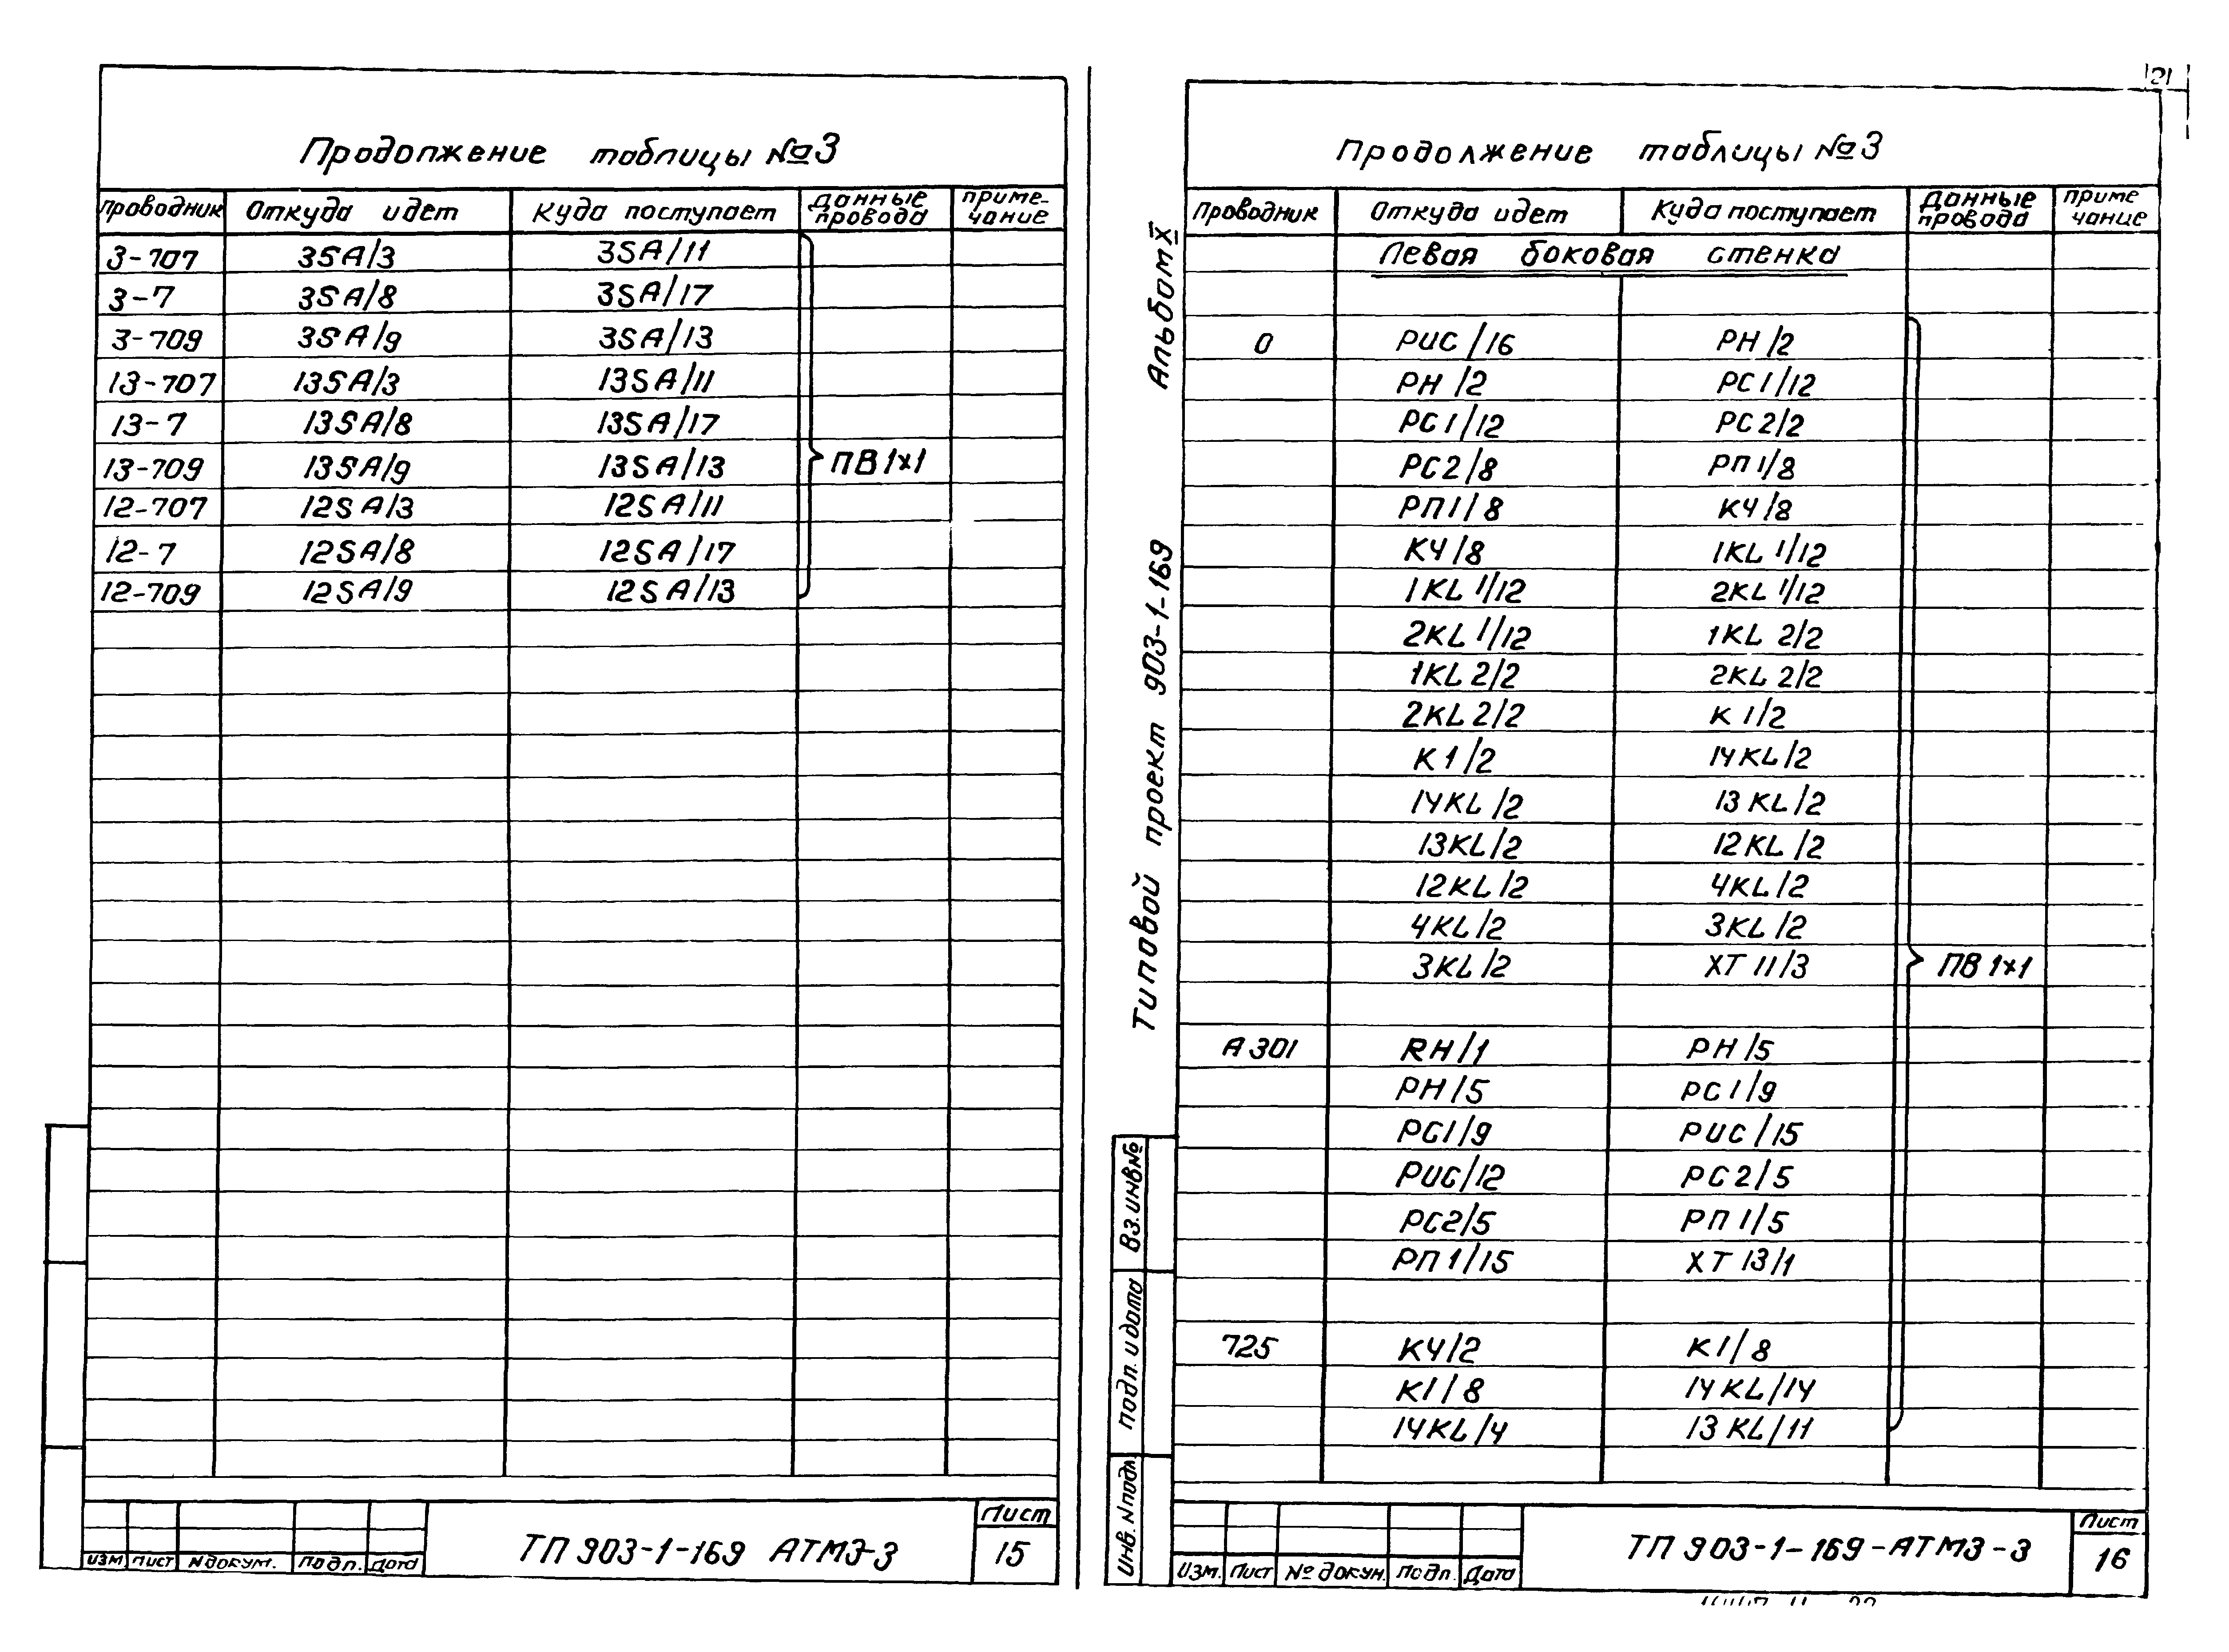 Продолжение таблицы №3
Проводник Откуда идет Куда поступает Данные провода Приме-чание
3-707 3SA/3 3SA/11
3-7 3SA/8 3SA/17
3-709 3SA/9 3SA/13
13-707 13SA/3 13SA/11
13-7 13SA/8 13SA/17
13-709 13SA/9 13SA/13 ПВ 1х1
12-707 12SA/3 12SA/11
12-7 12SA/8 12SA/17
12-709 12SA/9 12SA/13
Изм Лист N докум. Подп. Дата
ТП 903-1-169 АТМ3-3
Лист
15
21
Альбом X
Типовой проект 903-1-169
Вз. инв №
Подп. и дата
Инв. N подл.
Продолжение таблицы №3
Проводник Откуда идет Куда поступает Данные провода Приме чание
Левая боковая стенка
0 РИС/16 РН/2
РН/2 РС1/12
РС1/12 РС2/2
РС2/8 РП1/8
РП1/8 К4/8
К4/8 1KL1/12
1KL1/12 2KL1/12
2KL1/12 1KL2/2
1KL2/2 2KL2/2
2KL2/2 К1/2
К1/2 14KL/2
14KL/2 13KL/2
13KL/2 12KL/2
12KL/2 4KL/2
4KL/2 3KL/2
3KL/2 ХТ11/3 ПВ 1х1
А301 RН/1 РН/5
РН/5 РС1/9
РС1/9 РИС/15
РИС/12 РС2/5
РС2/5 РП1/5
РП1/15 ХТ13/1
725 К4/2 К1/8
К1/8 14KL/14
14KL/4 13KL/11
Изм. Лист № докун. Подп. Дата
ТП 903-1-169-АТМ3-3
Лист
16